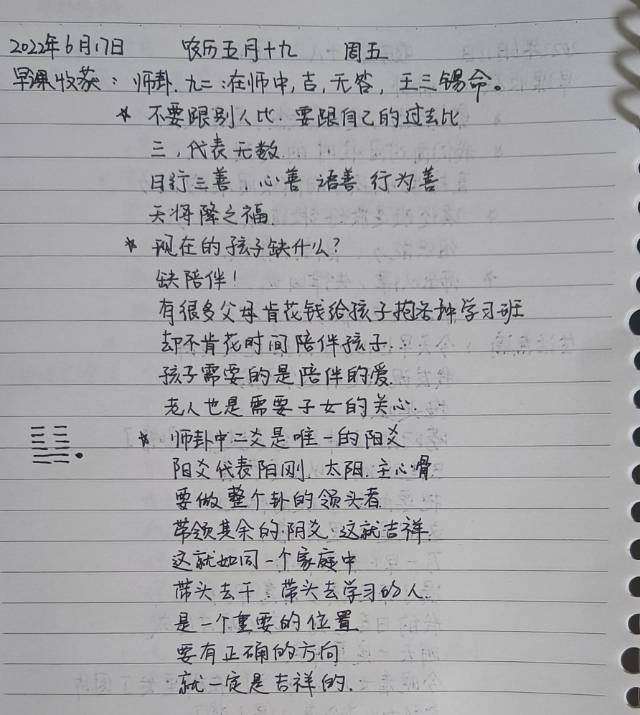 2022年6月17日 农历五月十九 周五
早课收获：师卦.九二：在师中,吉,无咎,王三锡命。
* 不要跟别人比.要跟自己的过去比
三,代表无数.
日行三善,心善 语善 行为善
天将降之福.
* 现在的孩子缺什么?
缺陪伴!
有很多父母肯花钱给孩子抱各种学习班
却不肯花时间陪伴孩子.
孩子需要的是陪伴的爱.
老人也是需要子女的关心.
* 师卦中二爻是唯一的阳爻
阳爻代表阳刚.太阳.主心骨
要做整个卦的领头者.
带领其余的阴爻.这就吉祥.
这就如同一个家庭中
带头去干.带头去学习的人.
是一个重要的位置.
要有正确的方向
就一定是吉祥的.